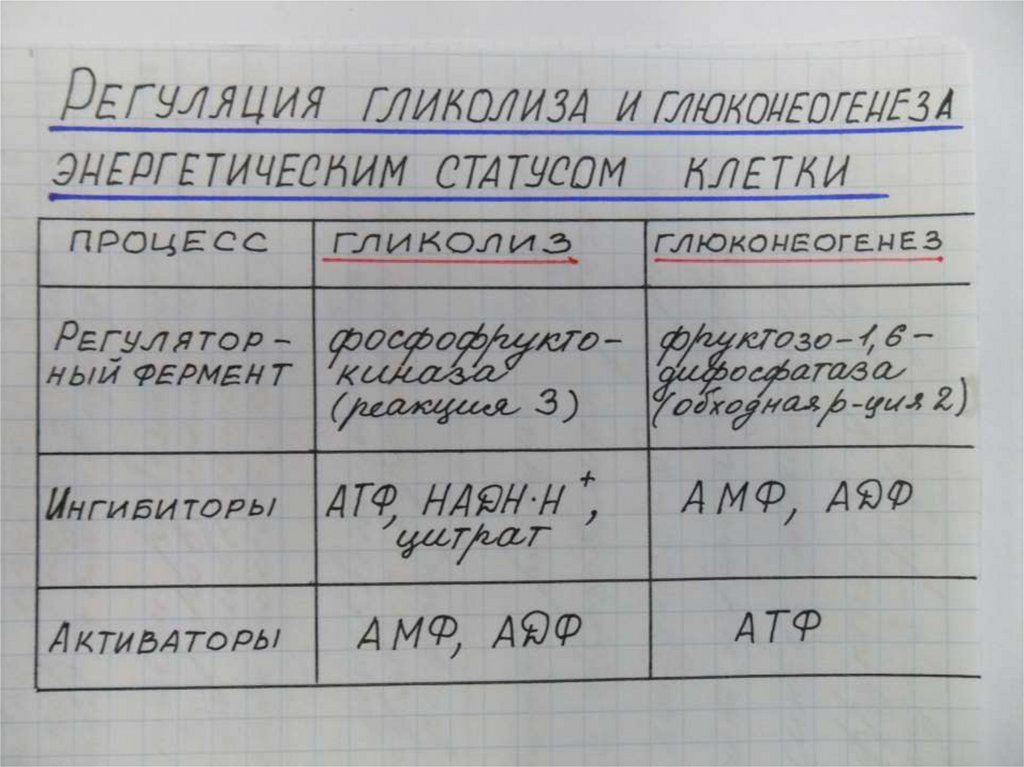 РЕГУЛЯЦИЯ ГЛИКОЛИЗА И ГЛЮКОНЕОГЕНЕЗА
ЭНЕРГЕТИЧЕСКИМ СТАТУСОМ КЛЕТКИ
ПРОЦЕСС
ГЛИКОЛИЗ
ГЛЮКОНЕОГЕНЕЗ
РЕГУЛЯТОР-
НЫЙ ФЕРМЕНТ
фосфофрукто-
киназа
(реакция 3)
фруктозо-1,6-
дифосфатаза
(обходная р-ция 2)
ИНГИБИТОРЫ
АТФ, НАДН·Н⁺,
цитрат
АМФ, АДФ
АКТИВАТОРЫ
АМФ, АДФ
АТФ